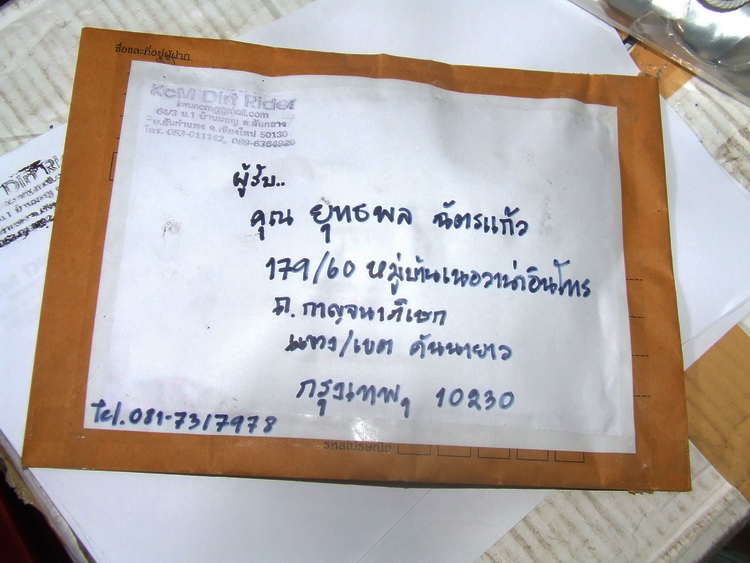 ชื่อและที่อยู่ผู้ฝาก
KcM Dirt Rider
kwuncm@gmail.com
64/3 ม.1 ต.สันกลาง
อ.สันกำแพง จ.เชียงใหม่ 50130
โทร. 053-011142, 089-6354929
ผู้รับ..
คุณ ยุทธพล ฉัตรแก้ว
179/60 หมู่บ้านเนอวาน่าอินโทร
ถ.กาญจนาภิเษก
แขวง/เขต คันนายาว
กรุงเทพฯ 10230
Tel.081-7317978
รหัสไปรษณีย์
Dirt Ri